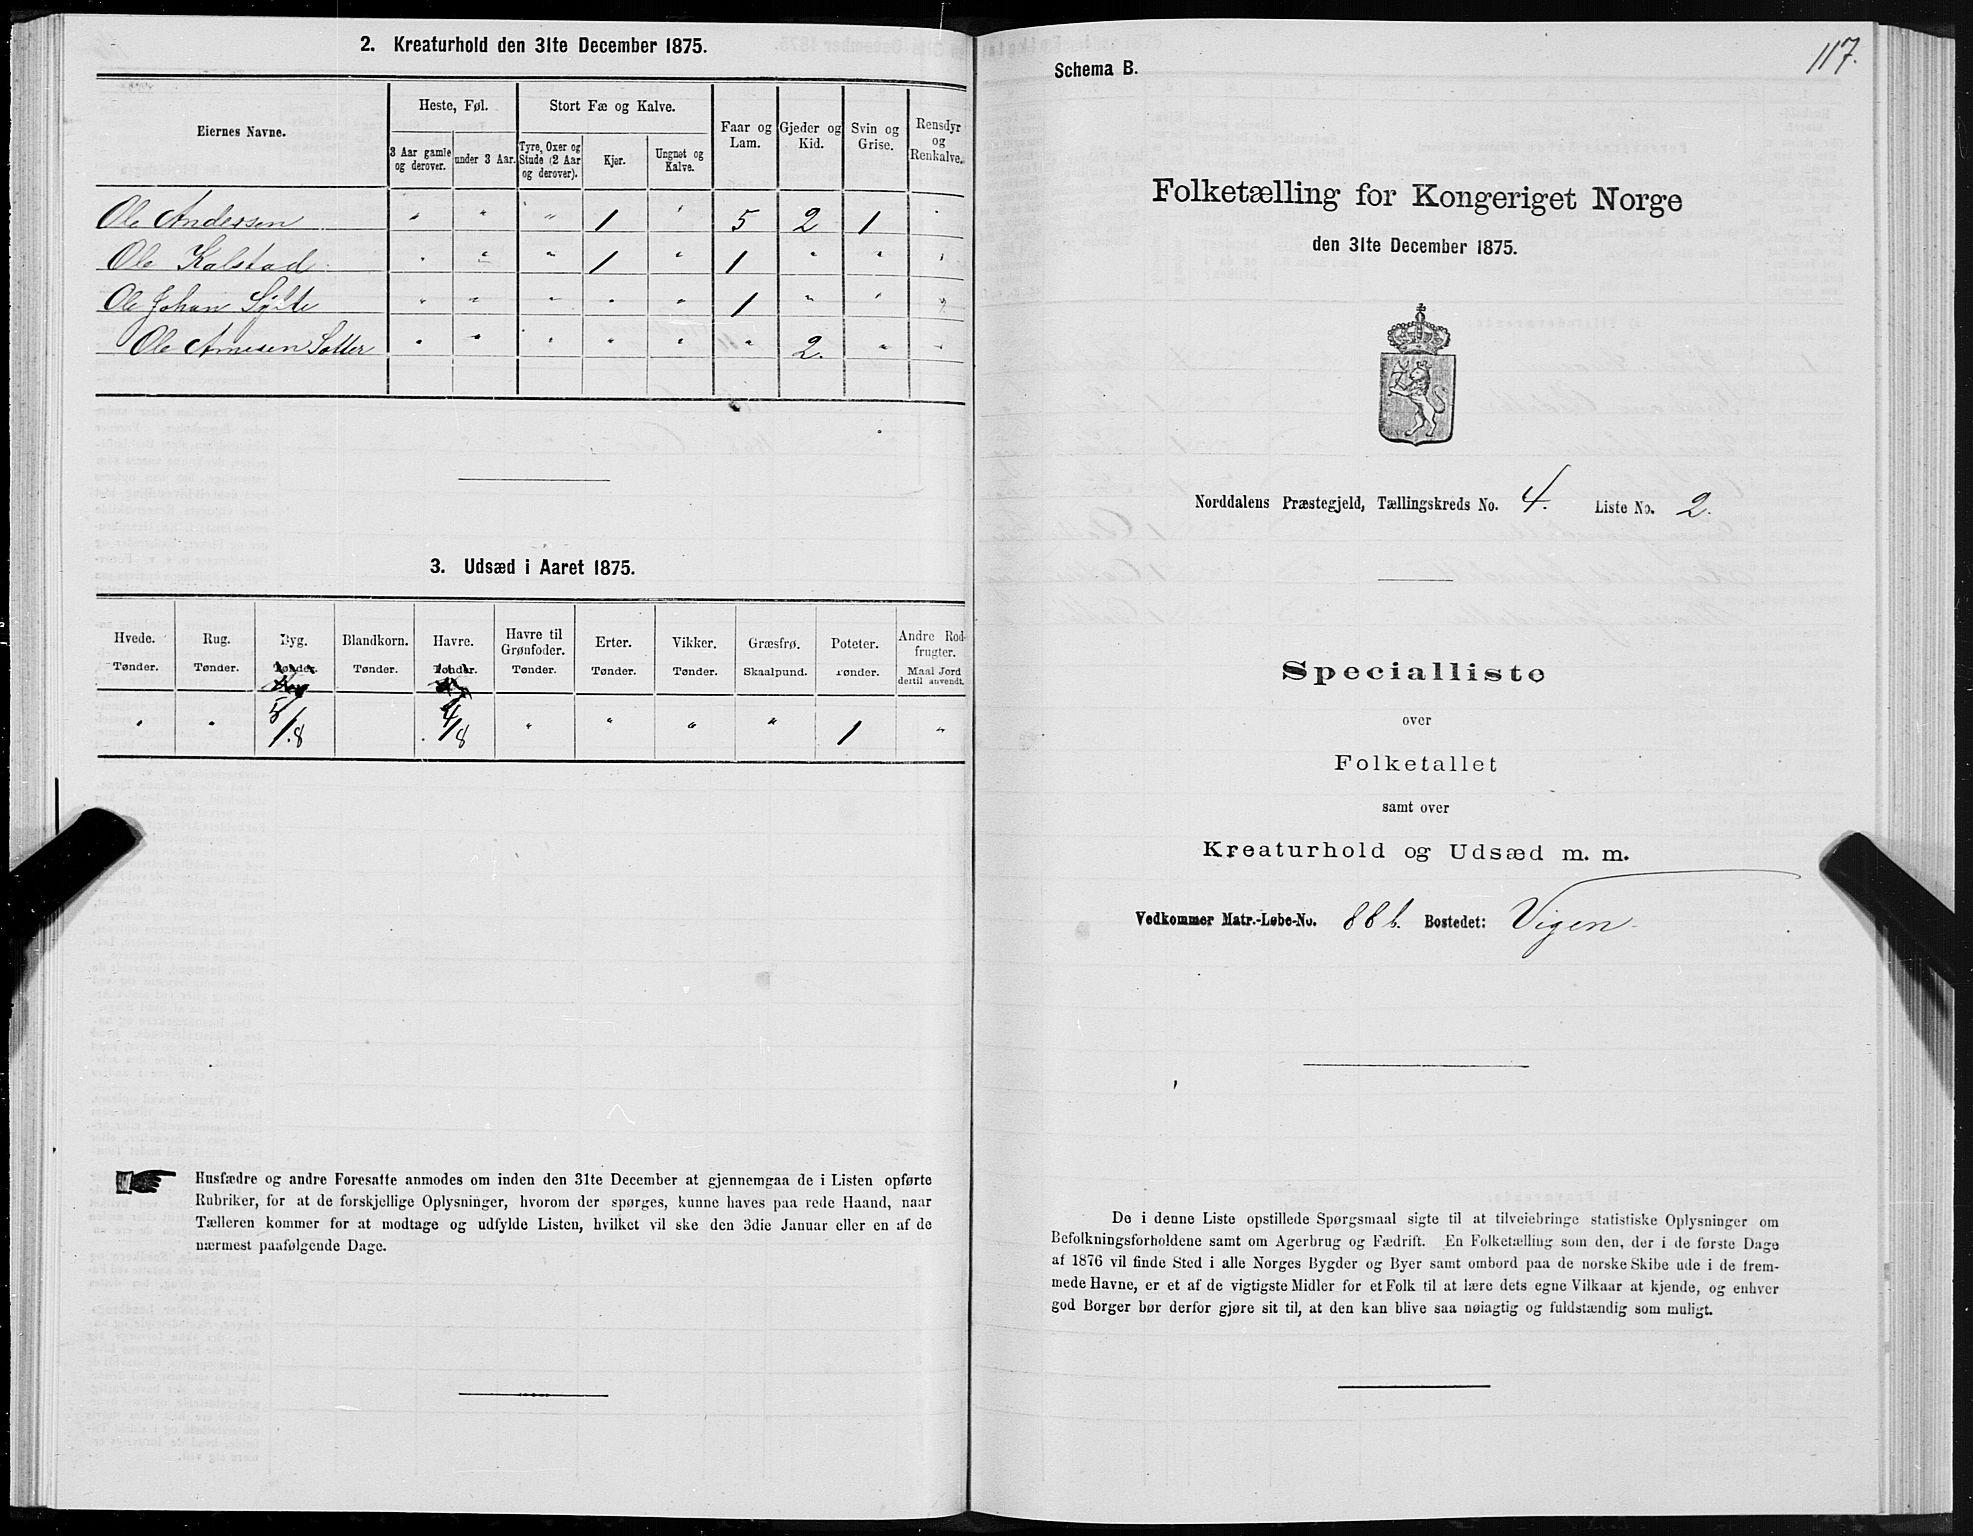 2. Kreaturhold den 31te December 1875.
Eiernes Navne.
Heste, Føl.
Stort Fæ og Kalve.
Faar og Lam.
Gjeder og Kid.
Svin og Grise.
Rensdyr og Renkalve.
3 Aar gamle og derover.
under 3 Aar.
Tyre, Oxer og Stude (2 Aar og derover).
Kjør.
Ungnøt og Kalve.
Ole Andersen " " " 1 " 5 2 1 "
Ole Kalstad " " " 1 " 1 " " "
Ole Johan Sylte " " " " " 1 " " "
Ole Arnesen " " " " " " 2. " "
3. Udsæd i Aaret 1875.
Hvede. Rug. Byg. Blandkorn. Havre. Havre til Grønfoder. Erter. Vikker. Græsfrø. Poteter. Andre Rodfrugter.
Tønder. Tønder. Tønder. Tønder. Tønder. Tønder. Tønder. Tønder. Skaalpund. Tønder. Maal Jord dertil anvendt.
" " 5/8 4/8 " " " " 1 "
Husfædre og andre Foresatte anmodes om inden den 31te December at gjennemgaa de i Listen opførte
Rubriker, for at de forskjellige Oplysninger, hvorom der spørges, kunne haves paa rede Haand, naar
Tælleren kommer for at modtage og udfylde Listen, hvilket vil ske den 3die Januar eller en af de
nærmest paafølgende Dage.
117.
Schema B.
Folketælling for Kongeriget Norge
den 31te December 1875.
Norddalens Præstegjeld, Tællingskreds No. 4. Liste No. 2.
Specialliste
over
Folketallet
samt over
Kreaturhold og Udsæd m. m.
Vedkommer Matr.-Løbe-No. 88b. Bostedet: Vigen
De i denne Liste opstillede Spørgsmaal sigte til at tilveiebringe statistiske Oplysninger om
Befolkningsforholdene samt om Agerbrug og Fædrift. En Folketælling som den, der i de første Dage
af 1876 vil finde Sted i alle Norges Bygder og Byer samt ombord paa de norske Skibe ude i de frem-
mede Havne, er et af de vigtigste Midler for et Folk til at lære dets egne Vilkaar at kjende, og enhver
god Borger bør derfor gjøre sit til, at den kan blive saa nøiagtig og fuldstændig som muligt.